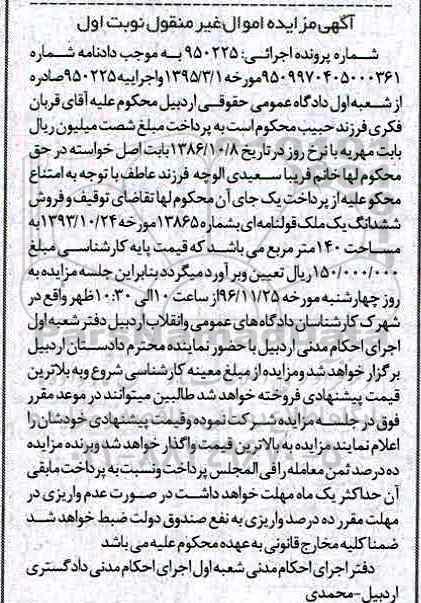 آگهی مزایده اموال غیر منقول نوبت اول
شماره پرونده اجرائی: ۹۵۰۲۲۵ به موجب دادنامه شماره
۹۵۰۹۹۷۰۴۰۵۰۰۰۳۶۱مورخه ۱۳۹۵/۳/۱واجراییه ۹۵۰۲۲۵صادره
از شعبه اول دادگاه عمومی حقوقی اردبیل محکوم علیه آقای قربان
فکری فرزند حبیب محکوم است به پرداخت مبلغ شصت میلیون ریال
بابت مهریه با نرخ روز در تاریخ ۱۳۸۶/۱۰/۸بابت اصل خواسته در حق
محکوم لها خانم فریبا سعیدی الوجه فرزند عاطف با توجه به امتناع
محکو علیه از پرداخت یک جای آن محکوم لها تقاضای توقیف و فروش
ششدانگ یک ملک قولنامه ای بشماره ۱۳۸۶۵مورخه ۱۳۹۳/۱۰/۲۴به
مساحت ۱۴۰متر مربع می باشد که قیمت پایه کارشناسی مبلغ
۱۵۰/۰۰۰/۰۰۰ریال تعیین وبر آورد میگردد بنابراین جلسه مزایده به
روز چهارشنبه مورخه ۹۶/۱۱/۲۵از ساعت ۱۰الی ۱۰:۳۰ظهر واقع در
شهرک کارشناسان دادگاه های عمومی وانقلاب اردبیل دفتر شعبه اول
اجرای احکام مدنی اردبیل با حضور نماینده محترم دادستان اردبیل
برگزار خواهد شد ومزایده از مبلغ معینه کارشناسی شروع وبه بلاترین
قیمت پیشنهادی فروخته خواهد شد طالبین میتوانند در موعد مقرر
فوق در جلسه مزایده شرکت نموده وقیمت پیشنهادی خودشان را
اعلام نمایند مزایده به بالاترین قیمت واگذار خواهد شد وبرنده مزایده
ده درصد ثمن معامله را فی المجلس پرداخت ونسبت به پرداخت مابقی
آن حداکثر یک ماه مهلت خواهد داشت در صورت عدم واریزی در
مهلت مقرر ده درصد واریزی به نفع صندوق دولت ضبط خواهد شد
ضمنا کلیه مخارج قانونی به عهده محکوم علیه می باشد
دفتر اجرای احکام مدنی شعبه اول اجرای احکام مدنی دادگستری
اردبیل-محمدی